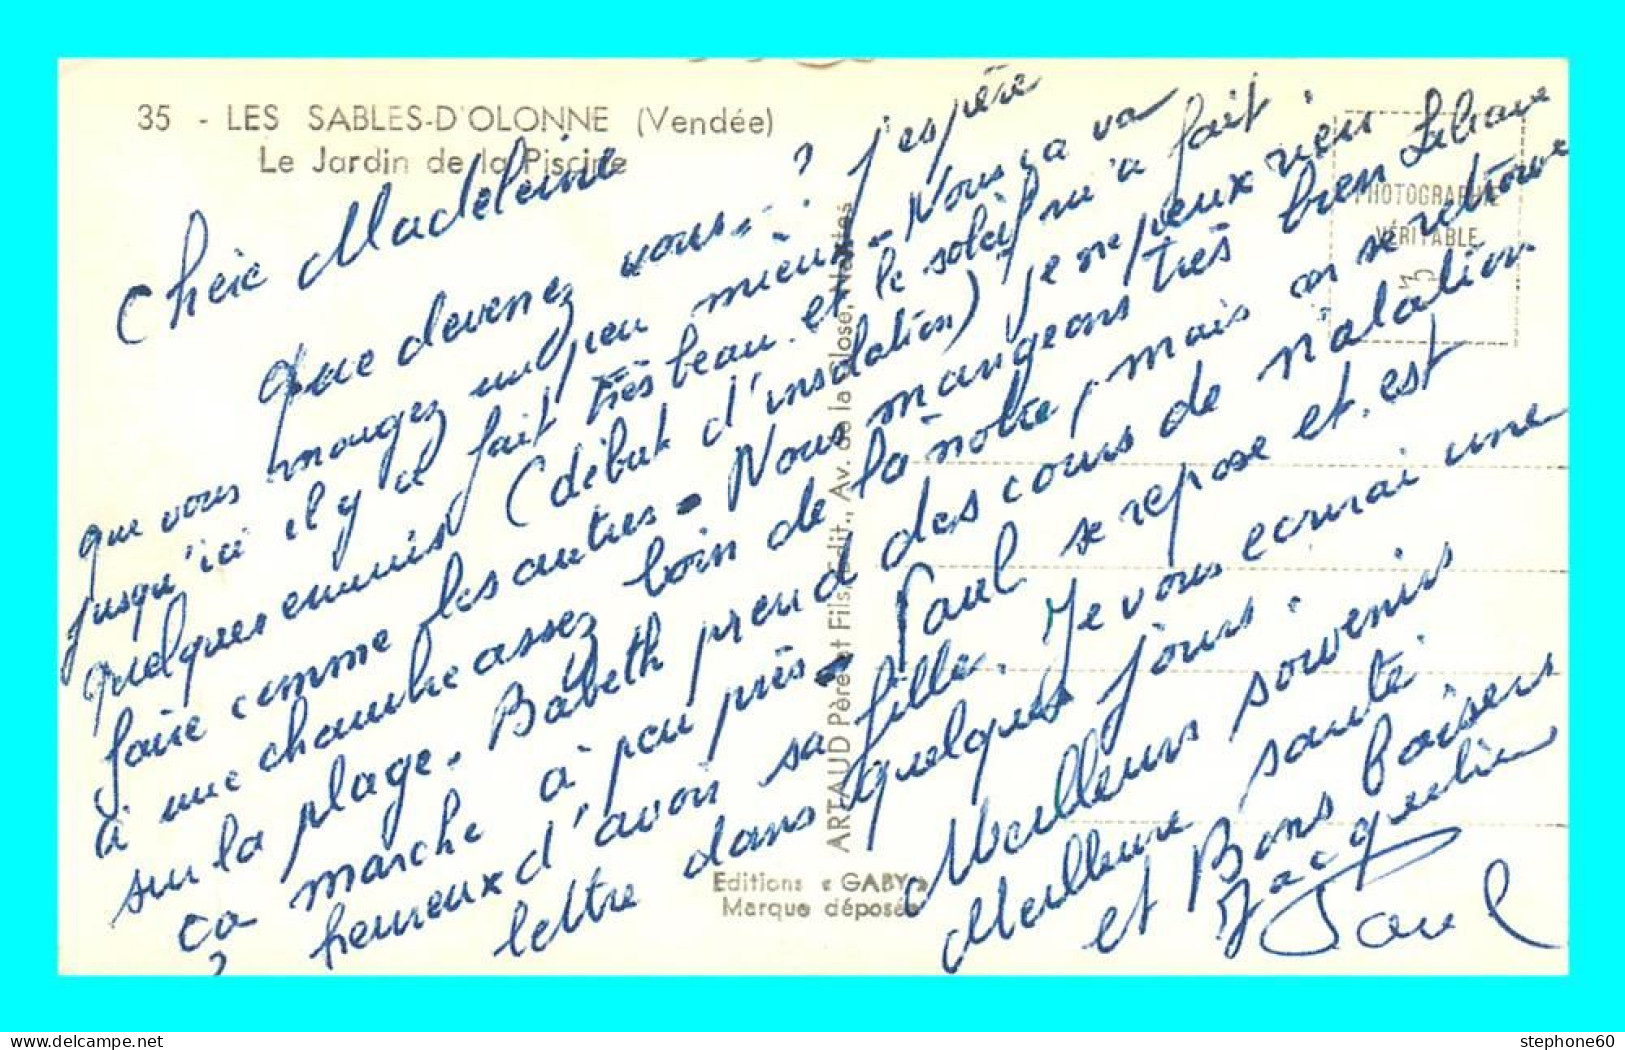 35 - LES SABLES-D'OLONNE (Vendée)
Le Jardin de la Piscine
Chère Madeleine
que devenez vous? j'espère
que vous mangez un peu mieux - Nous ça va
jusqu'ici il y a fait très beau. et le soleil m'a fait
quelques ennuis (début d'insolation) je ne peux rien
faire comme les autres - Nous mangeons très bien Liliane
à une chambre assez loin de la nôtre, mais on se retrouve
sur la plage. Babeth prend des cours de natation
ça marche à peu près - Paul se repose et est
heureux d'avoir sa fille. Je vous écrirai une
lettre dans quelques jours.
Meilleurs souvenirs
Meilleure santé
et Bons baisers
Jacqueline
Paul
PHOTOGRAPHIE
VÉRITABLE
ARTAUD Père et Fils, Edit., Av. de la Close, Nantes
Editions « GABY »
Marque déposée
stephone60